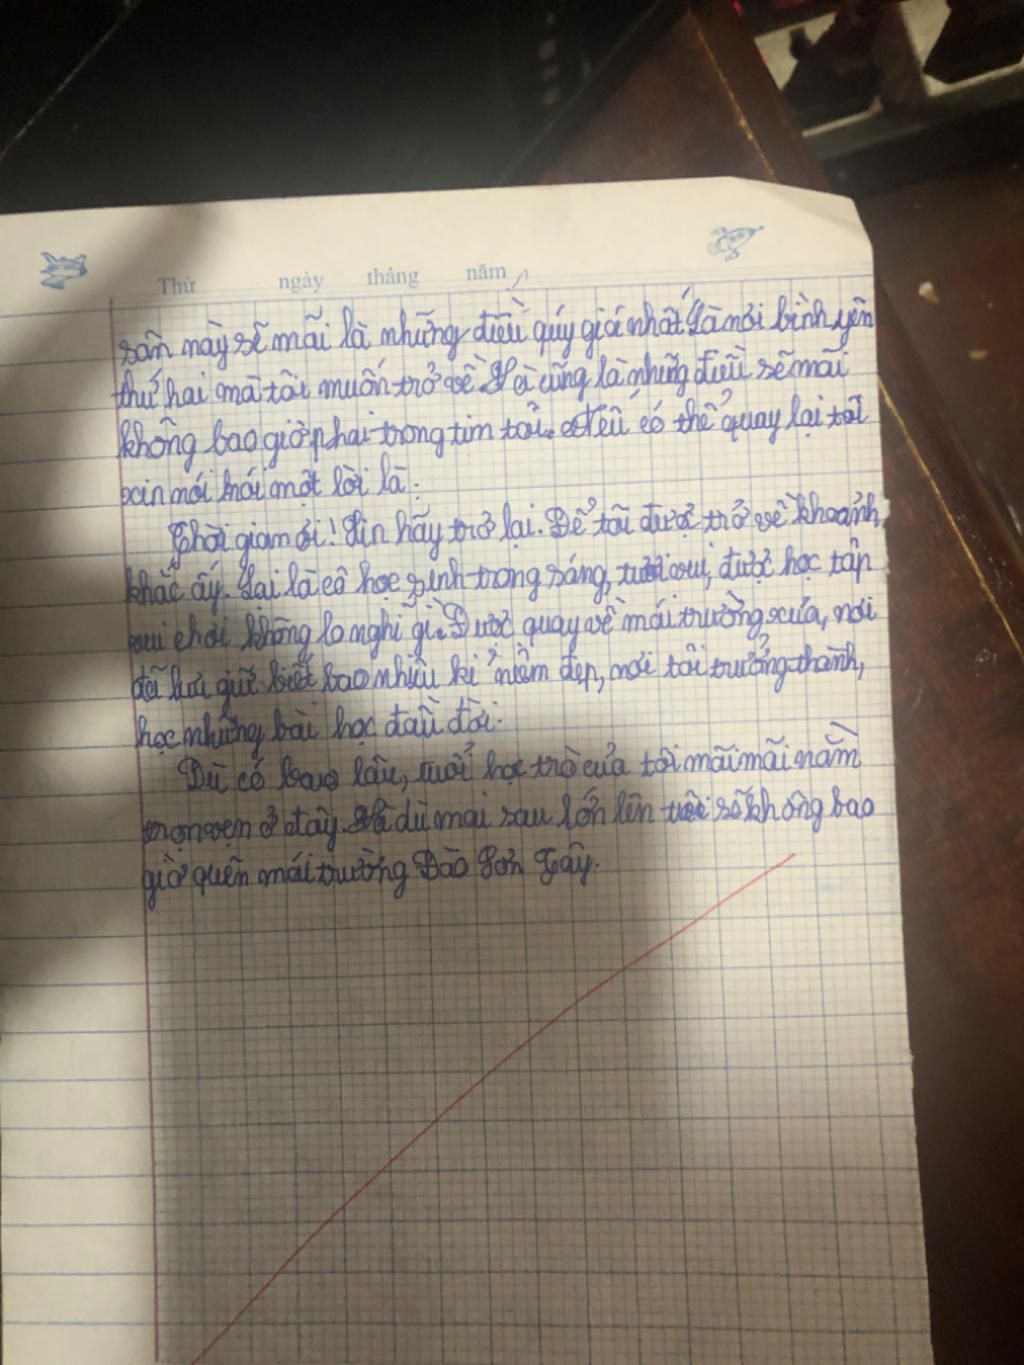 Thứ ngày tháng năm
sân này sẽ mãi là những điều quý giá nhất. Là nơi bình yên
thứ hai mà tôi muốn trở về. Và cũng là những điều sẽ mãi
không bao giờ phai trong tim tôi. Nếu có thể quay lại tôi
xin mói nói một lời là:
Thời gian ơi! Xin hãy trở lại. Để tôi được trở về khoảnh
khắc ấy. Lại là cô học sinh trong sáng, tươi vui, được học tập
vui chơi không lo nghĩ gì. Được quay về mái trường xưa, nơi
đã lưu giữ biết bao nhiêu kỉ niệm đẹp, nơi tôi trưởng thành,
học những bài học đầu đời.
Dù có bao lâu, tuổi học trò của tôi mãi mãi nằm
trọn vẹn ở đây. Và dù mai sau lớn lên tôi sẽ không bao
giờ quên mái trường Đào Sơn Tây.